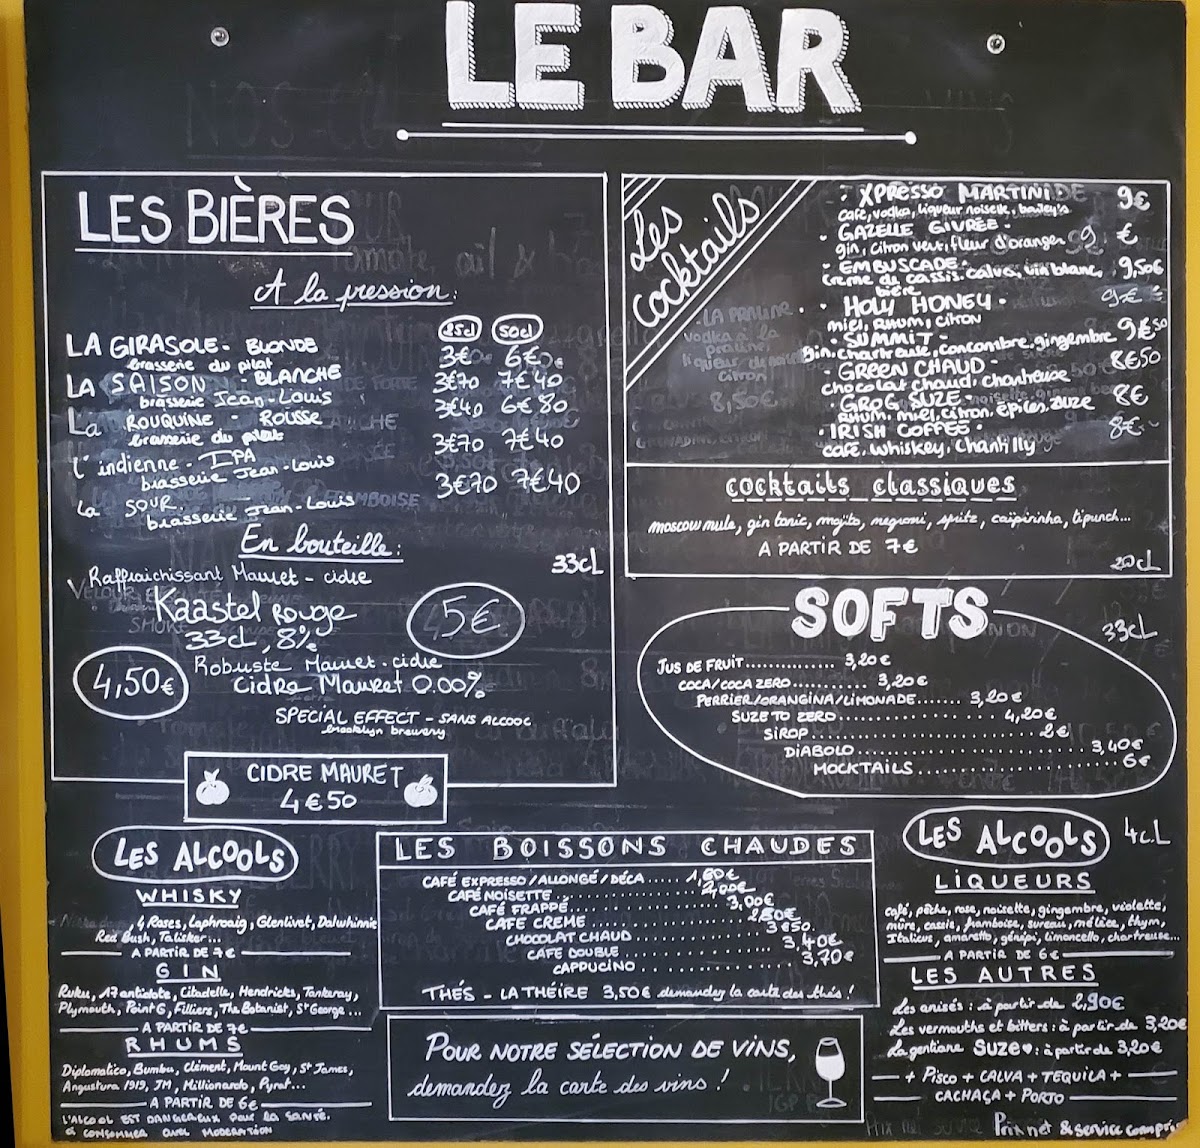 LE BAR
LES BIÈRES
A la pression:
25cl 50cl
LA GIRASOLE - BLONDE 3€ 6€
brasserie du pilat
LA SAISON - BLANCHE 3€70 7€40
brasserie Jean-Louis
La ROUQUINE - ROUSSE 3€40 6€80
brasserie du pilat
l'indienne - IPA 3€70 7€40
brasserie Jean-Louis
la SOUR 3€70 7€40
brasserie Jean-Louis
En bouteille:
33cL
Raffraichissant Mauret - cidre
Kaastel Rouge
33cL, 8%
5€
Robuste Mauret - cidre
Cidre Mauret 0.00%
4,50€
SPECIAL EFFECT - SANS ALCOOL
brooklyn brewery
CIDRE MAURET
4€50
Les cocktails
• XPRESSO MARTINI 9€
café, vodka, liqueur noisette, bailey's
• GAZELLE GIVRÉE • 9€
gin, citron vert, fleur d'oranger
• EMBUSCADE • 9,50€
creme de cassis, calva, vin blanc,
bière
• HOLY HONEY • 9€
miel, RHUM, CITRON
• SUMMIT - 9€50
Gin, chartreuse, concombre, gingembre
• GREEN CHAUD - 8€50
chocolat chaud, chartreuse
• GROG SUZE • 8€
RHUM, miel, citron, épices, suze
• IRISH COFFEE • 8€
café, whiskey, Chantilly
• LA PRALINE •
vodka à la
praline,
liqueur de noisette
citron
8,50€
cocktails classiques
moscow mule, gin tonic, mojito, negroni, spritz, caïpirinha, tipunch...
A PARTIR DE 7€
20cL
SOFTS
33cL
JUS DE FRUIT.............. 3,20€
COCA/COCA ZERO........... 3,20€
PERRIER/ORANGINA/LIMONADE....... 3,20€
SUZE TO ZERO.................... 4,20€
SIROP............................... 2€
DIABOLO............................ 3,40€
MOCKTAILS........................... 6€
LES ALCOOLS
WHISKY
4 Roses, Laphroaig, Glenlivet, Dalwhinnie
Red Bush, Talisker...
A PARTIR DE 7€
GIN
Roku, 17 antidote, Citadelle, Hendricks, Tankeray,
Plymouth, Point G, Filliers, The Botanist, St George...
A PARTIR DE 7€
RHUMS
Diplomatico, Bumbu, Clément, Mount Gay, St James,
Angustura 1919, JM, Millionardo, Pyrat...
A PARTIR DE 6€
L'ALCOOL EST DANGEREUX POUR LA SANTÉ.
à CONSOMMER AVEC MODERATION
LES BOISSONS CHAUDES
CAFÉ EXPRESSO/ALLONGÉ/DÉCA..... 1,80€
CAFÉ NOISETTE................... 2,00€
CAFÉ FRAPPÉ.................... 3,00€
CAFE CREME.................... 2,80€
CHOCOLAT CHAUD................ 3€50
CAFE DOUBLE.................... 3,40€
CAPPUCINO...................... 3,70€
THÉS - LA THÉIRE 3,50€ demandez la carte des thés!
POUR NOTRE SÉLECTION DE VINS,
demandez la carte des vins!
LES ALCOOLS 4cL
LIQUEURS
café, pêche, rose, noisette, gingembre, violette,
mûre, cassis, framboise, sureau, mélice, thym,
Italicus, amaretto, génépi, limoncello, chartreuse...
A PARTIR DE 6€
LES AUTRES
Les anisés: à partir de 2,90€
Les vermouths et bitters: à partir de 3,20€
La gentiane SUZE♥: à partir de 3,20€
+ PISCO + CALVA + TEQUILA +
CACHAÇA + PORTO
Prix net & service compris